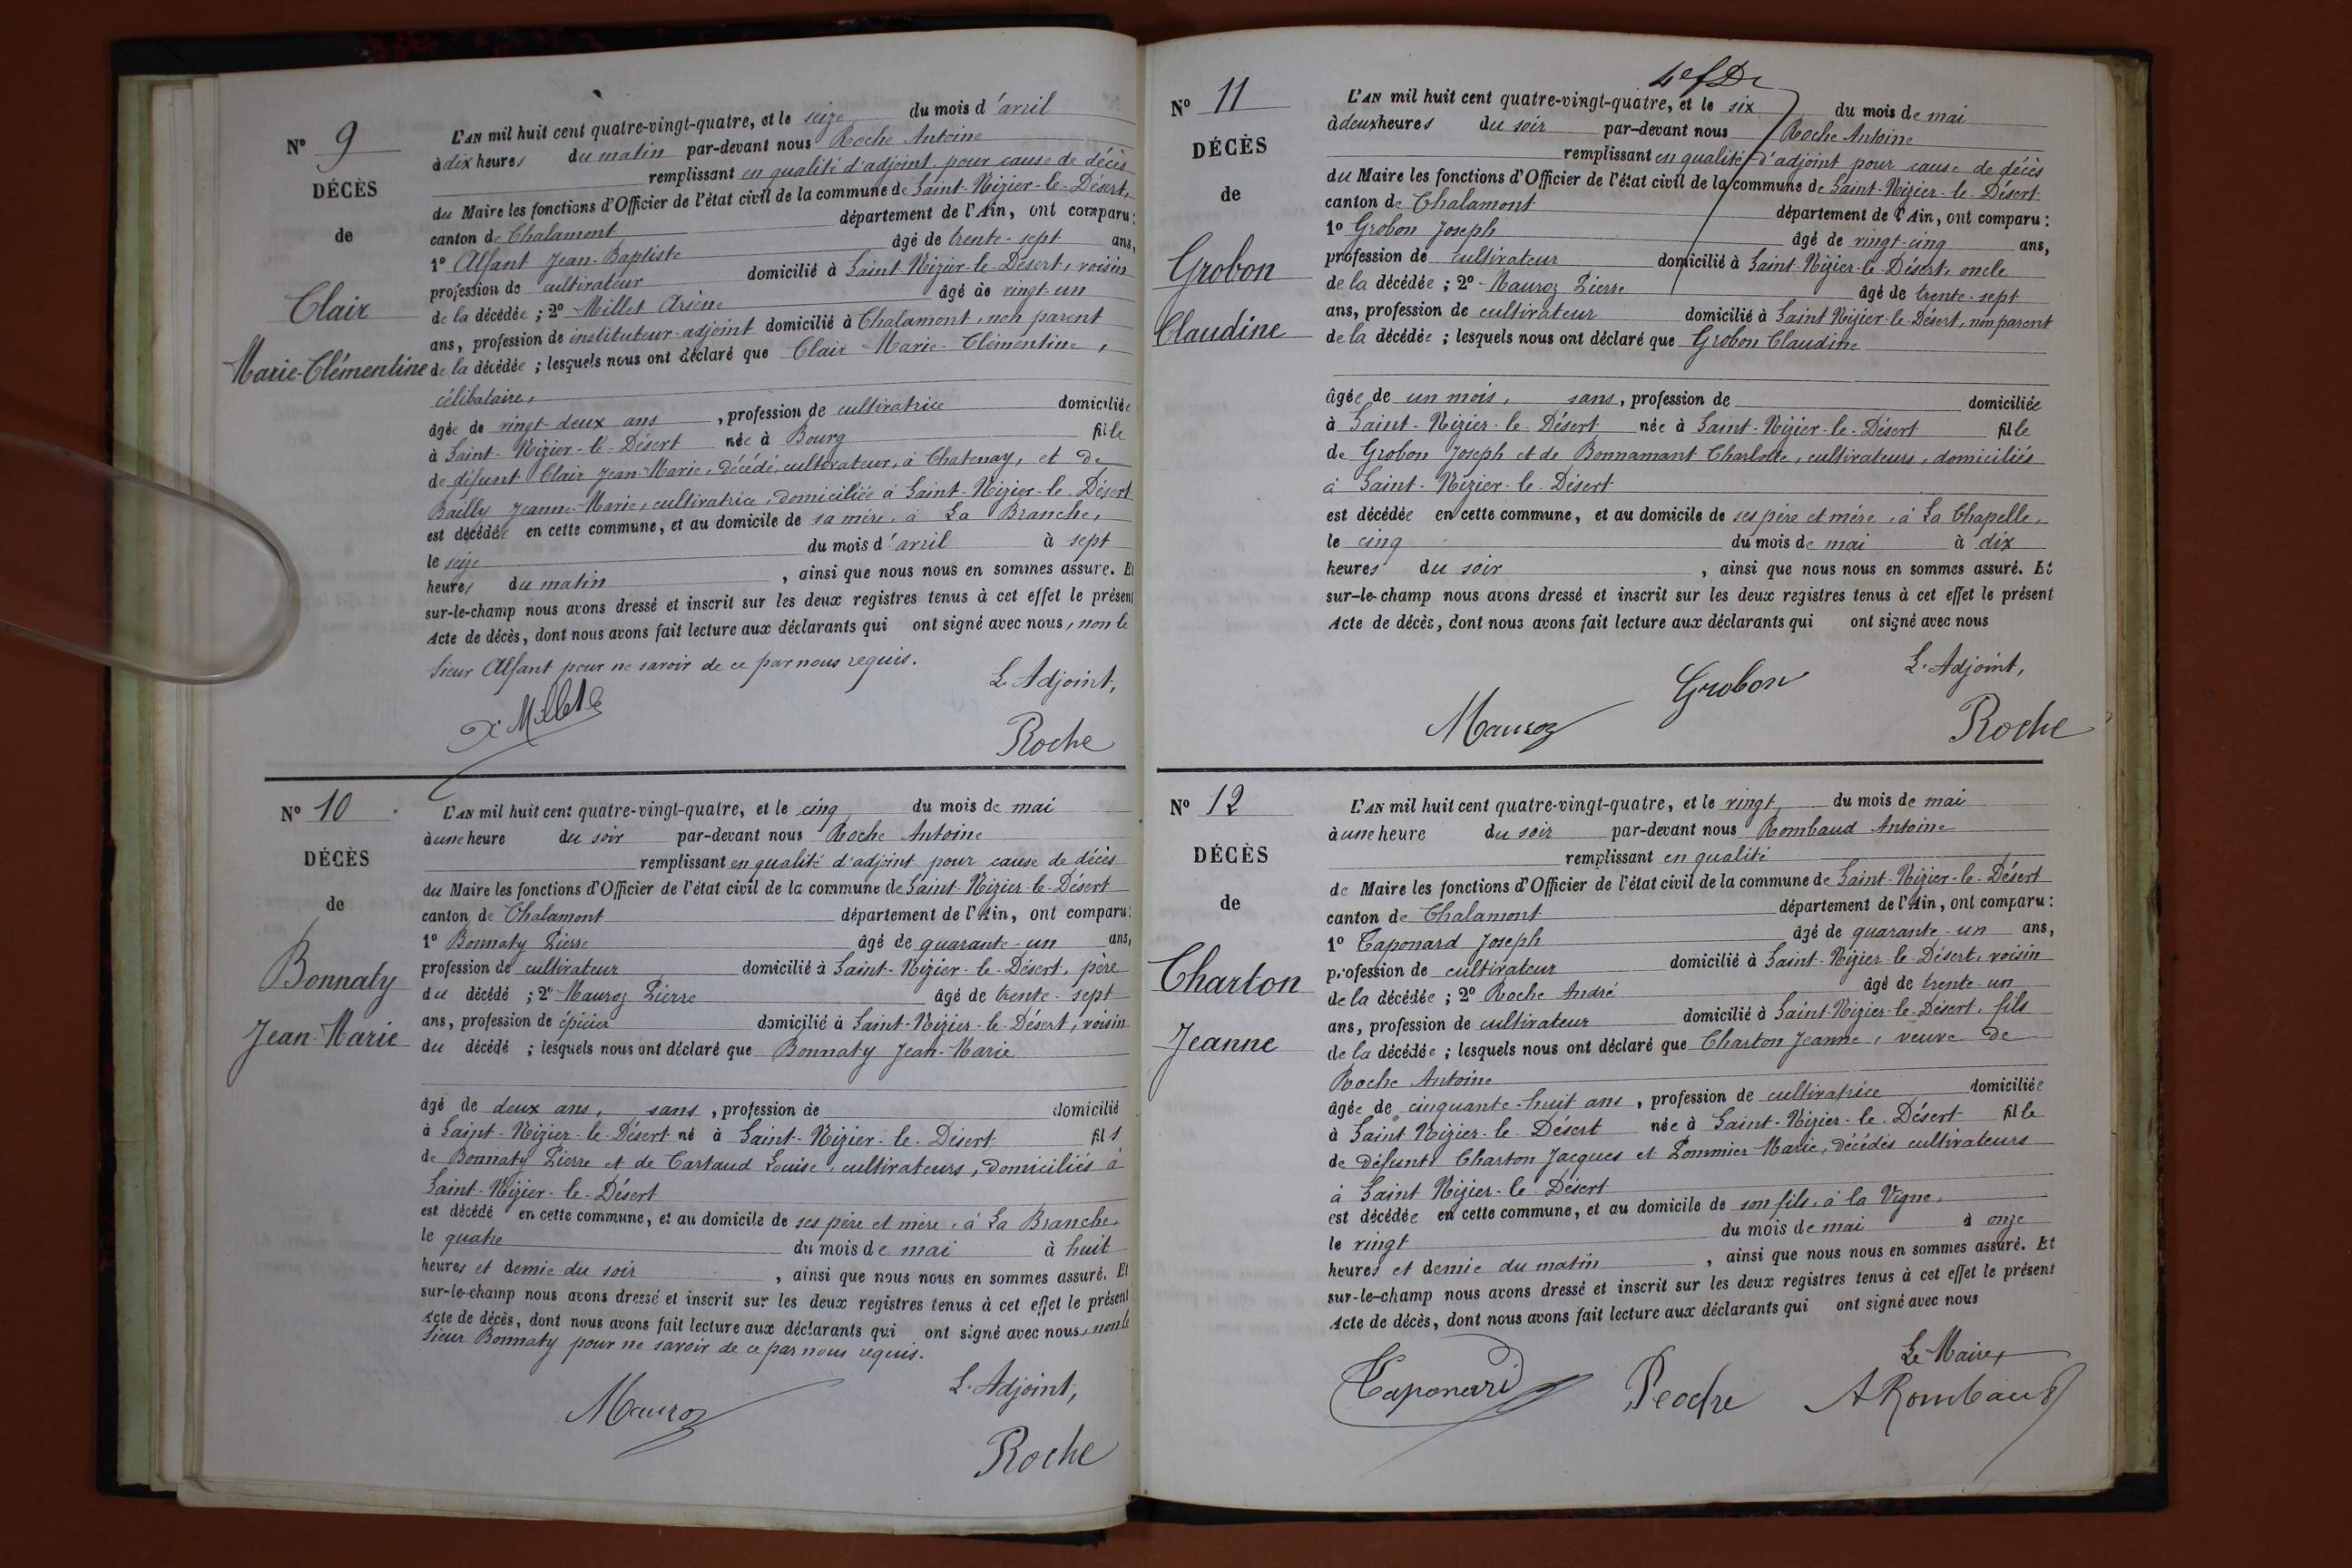 Nº 9
DÉCÈS
de
Clair
Marie-Clémentine
L'AN mil huit cent quatre-vingt-quatre, et le seize du mois d'avril
à dix heures du matin par-devant nous Roche Antoine
remplissant en qualité d'adjoint pour cause de décès
du Maire les fonctions d'Officier de l'état civil de la commune de Saint-Nizier-le-Désert,
canton de Chalamont département de l'Ain, ont comparu :
1º Alfant Jean-Baptiste âgé de trente-sept ans,
profession de cultivateur domicilié à Saint-Nizier-le-Désert, voisin
de la décédée ; 2º Millet Arsène âgé de vingt-un
ans, profession de instituteur-adjoint domicilié à Chalamont, non parent
de la décédée ; lesquels nous ont déclaré que Clair Marie-Clémentine,
célibataire,
âgée de vingt-deux ans, profession de cultivatrice domiciliée
à Saint-Nizier-le-Désert née à Bourg fille
de défunt Clair Jean-Marie, décédé, cultivateur, à Chatenay, et de
Bailly Jeanne-Marie, cultivatrice, domiciliée à Saint-Nizier-le-Désert
est décédée en cette commune, et au domicile de sa mère, à La Branche,
le seize du mois d'avril à sept
heures du matin, ainsi que nous nous en sommes assuré. Et
sur-le-champ nous avons dressé et inscrit sur les deux registres tenus à cet effet le présent
Acte de décès, dont nous avons fait lecture aux déclarants qui ont signé avec nous, non le
sieur Alfant pour ne savoir de ce par nous requis.
L'Adjoint,
Millet
Roche
Nº 10
DÉCÈS
de
Bonnaty
Jean-Marie
L'AN mil huit cent quatre-vingt-quatre, et le cinq du mois de mai
à une heure du soir par-devant nous Roche Antoine
remplissant en qualité d'adjoint pour cause de décès
du Maire les fonctions d'Officier de l'état civil de la commune de Saint-Nizier-le-Désert
canton de Chalamont département de l'Ain, ont comparu :
1º Bonnaty Pierre âgé de quarante-un ans,
profession de cultivateur domicilié à Saint-Nizier-le-Désert, père
du décédé ; 2º Mauroz Pierre âgé de trente-sept
ans, profession de épicier domicilié à Saint-Nizier-le-Désert, voisin
du décédé ; lesquels nous ont déclaré que Bonnaty Jean-Marie
âgé de deux ans, sans, profession de domicilié
à Saint-Nizier-le-Désert né à Saint-Nizier-le-Désert fils
de Bonnaty Pierre et de Cartaud Louise, cultivateurs, domiciliés à
Saint-Nizier-le-Désert
est décédé en cette commune, et au domicile de ses père et mère, à La Branche,
le quatre du mois de mai à huit
heures et demie du soir, ainsi que nous nous en sommes assuré. Et
sur-le-champ nous avons dressé et inscrit sur les deux registres tenus à cet effet le présent
Acte de décès, dont nous avons fait lecture aux déclarants qui ont signé avec nous, non le
sieur Bonnaty pour ne savoir de ce par nous requis.
L'Adjoint,
Mauroz
Roche
Nº 11
DÉCÈS
de
Grobon
Claudine
L'AN mil huit cent quatre-vingt-quatre, et le six du mois de mai
à deux heures du soir par-devant nous Roche Antoine
remplissant en qualité d'adjoint pour cause de décès
du Maire les fonctions d'Officier de l'état civil de la commune de Saint-Nizier-le-Désert
canton de Chalamont département de l'Ain, ont comparu :
1º Grobon Joseph âgé de vingt-cinq ans,
profession de cultivateur domicilié à Saint-Nizier-le-Désert, oncle
de la décédée ; 2º Mauroz Pierre âgé de trente-sept
ans, profession de cultivateur domicilié à Saint Nizier-le-Désert, non parent
de la décédée ; lesquels nous ont déclaré que Grobon Claudine
âgée de un mois, sans, profession de domiciliée
à Saint-Nizier-le-Désert née à Saint-Nizier-le-Désert fille
de Grobon Joseph et de Bonnamant Charlotte, cultivateurs, domiciliés
à Saint-Nizier-le-Désert
est décédée en cette commune, et au domicile de ses père et mère, à La Chapelle,
le cinq du mois de mai à dix
heures du soir, ainsi que nous nous en sommes assuré. Et
sur-le-champ nous avons dressé et inscrit sur les deux registres tenus à cet effet le présent
Acte de décès, dont nous avons fait lecture aux déclarants qui ont signé avec nous
L'Adjoint,
Grobon
Mauroz
Roche
Nº 12
DÉCÈS
de
Charton
Jeanne
L'AN mil huit cent quatre-vingt-quatre, et le vingt du mois de mai
à une heure du soir par-devant nous Rombaud Antoine
remplissant en qualité
de Maire les fonctions d'Officier de l'état civil de la commune de Saint-Nizier-le-Désert
canton de Chalamont département de l'Ain, ont comparu :
1º Caponard Joseph âgé de quarante-un ans,
profession de cultivateur domicilié à Saint-Nizier-le-Désert, voisin
de la décédée ; 2º Roche André âgé de trente-un
ans, profession de cultivateur domicilié à Saint-Nizier-le-Désert, fils
de la décédée ; lesquels nous ont déclaré que Charton Jeanne, veuve de
Roche Antoine
âgée de cinquante-huit ans, profession de cultivatrice domiciliée
à Saint Nizier-le-Désert née à Saint-Nizier-le-Désert fille
de défunts Charton Jacques et Pommier Marie, décédés cultivateurs
à Saint Nizier-le-Désert
est décédée en cette commune, et au domicile de son fils, à la Vigne,
le vingt du mois de mai à onze
heures et demie du matin, ainsi que nous nous en sommes assuré. Et
sur-le-champ nous avons dressé et inscrit sur les deux registres tenus à cet effet le présent
Acte de décès, dont nous avons fait lecture aux déclarants qui ont signé avec nous
Le Maire,
Caponard Roche ARombaud